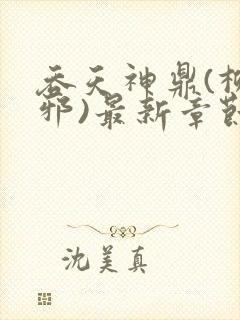 吞天神鼎(柳
邪)最新章節
沈美真